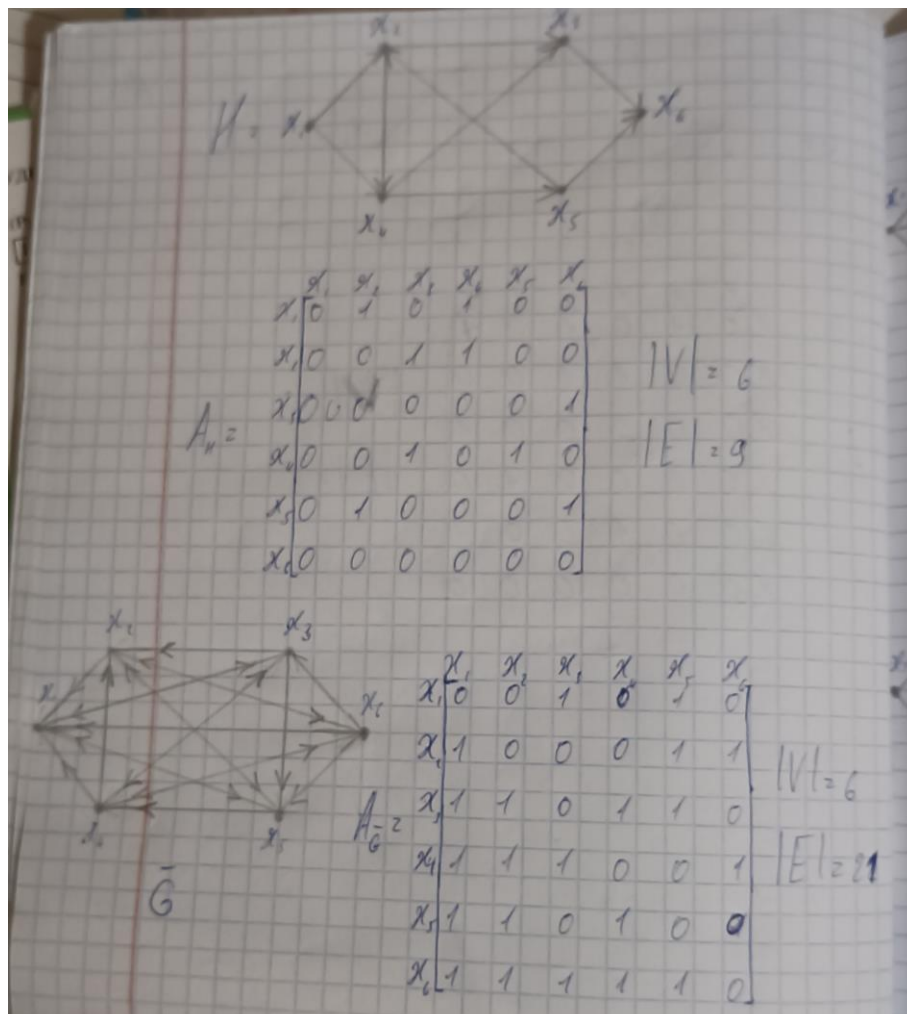 x₂ x₃
H = x₁ x₆
x₄ x₅
x₁ x₂ x₃ x₄ x₅ x₆
x₁ 0 1 0 1 0 0
x₂ 0 0 1 1 0 0
|V| = 6
x₃ 0 0 0 0 0 0 1
A_H =
|E| = 9
x₄ 0 0 1 0 1 0
x₅ 0 1 0 0 0 1
x₆ 0 0 0 0 0 0
x₂ x₃
x₁ x₆
x₄ x₅
G̅
x₁ x₂ x₃ x₄ x₅ x₆
x₁ 0 0 1 0 1 0
x₂ 1 0 0 0 1 1
|V| = 6
x₃ 1 1 0 1 1 0
A_G̅ =
x₄ 1 1 1 0 0 1
|E| = 21
x₅ 1 1 0 1 0 0
x₆ 1 1 1 1 1 0